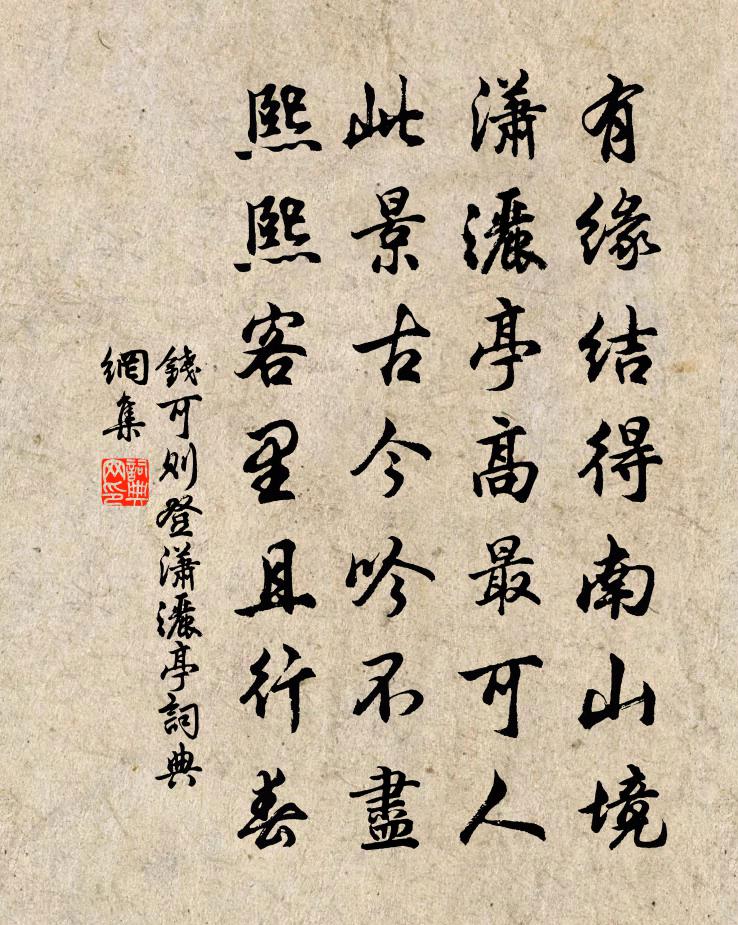 有緣結得南山境
瀟灑亭高最可人
此景古今吟不盡
熙熙客里且行春
錢可則登瀟灑亭詞典
網集
詞典
网印